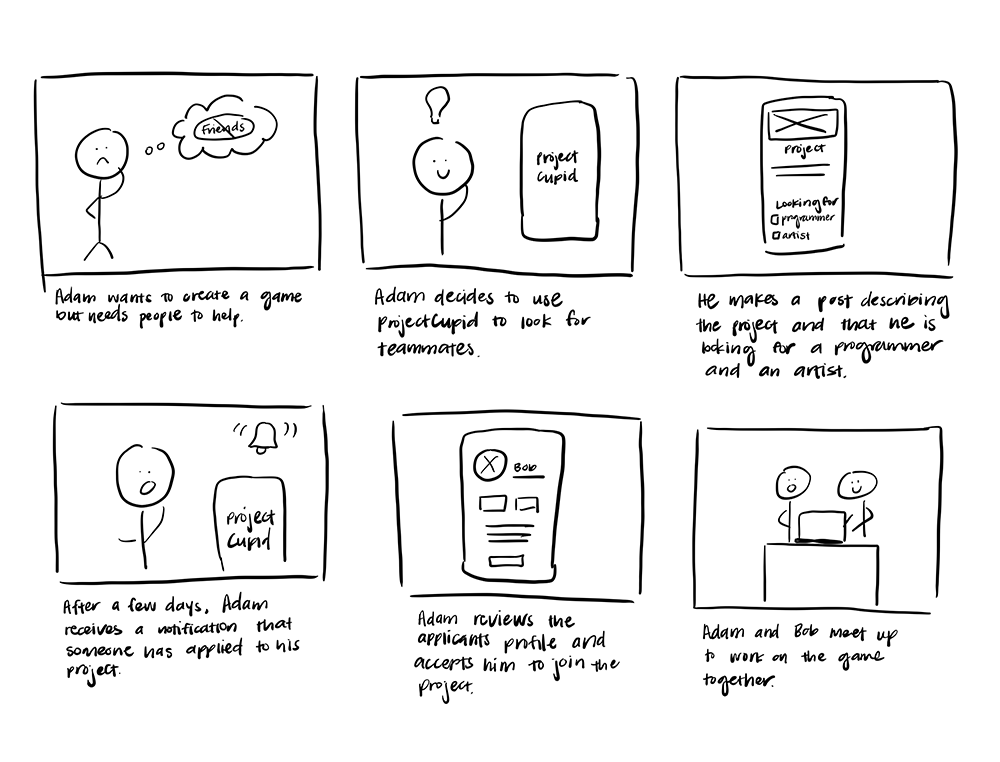 Friends
Adam wants to create a game
but needs people to help.
Project
Cupid
Adam decides to use
ProjectCupid to look for
teammates.
Project
Looking for
programmer
artist
He makes a post describing
the project and that he is
looking for a programmer
and an artist.
Project
Cupid
After a few days, Adam
receives a notification that
someone has applied to his
project.
Bob
Adam reviews the
applicants profile and
accepts him to join the
project.
Adam and Bob meet up
to work on the game
together.